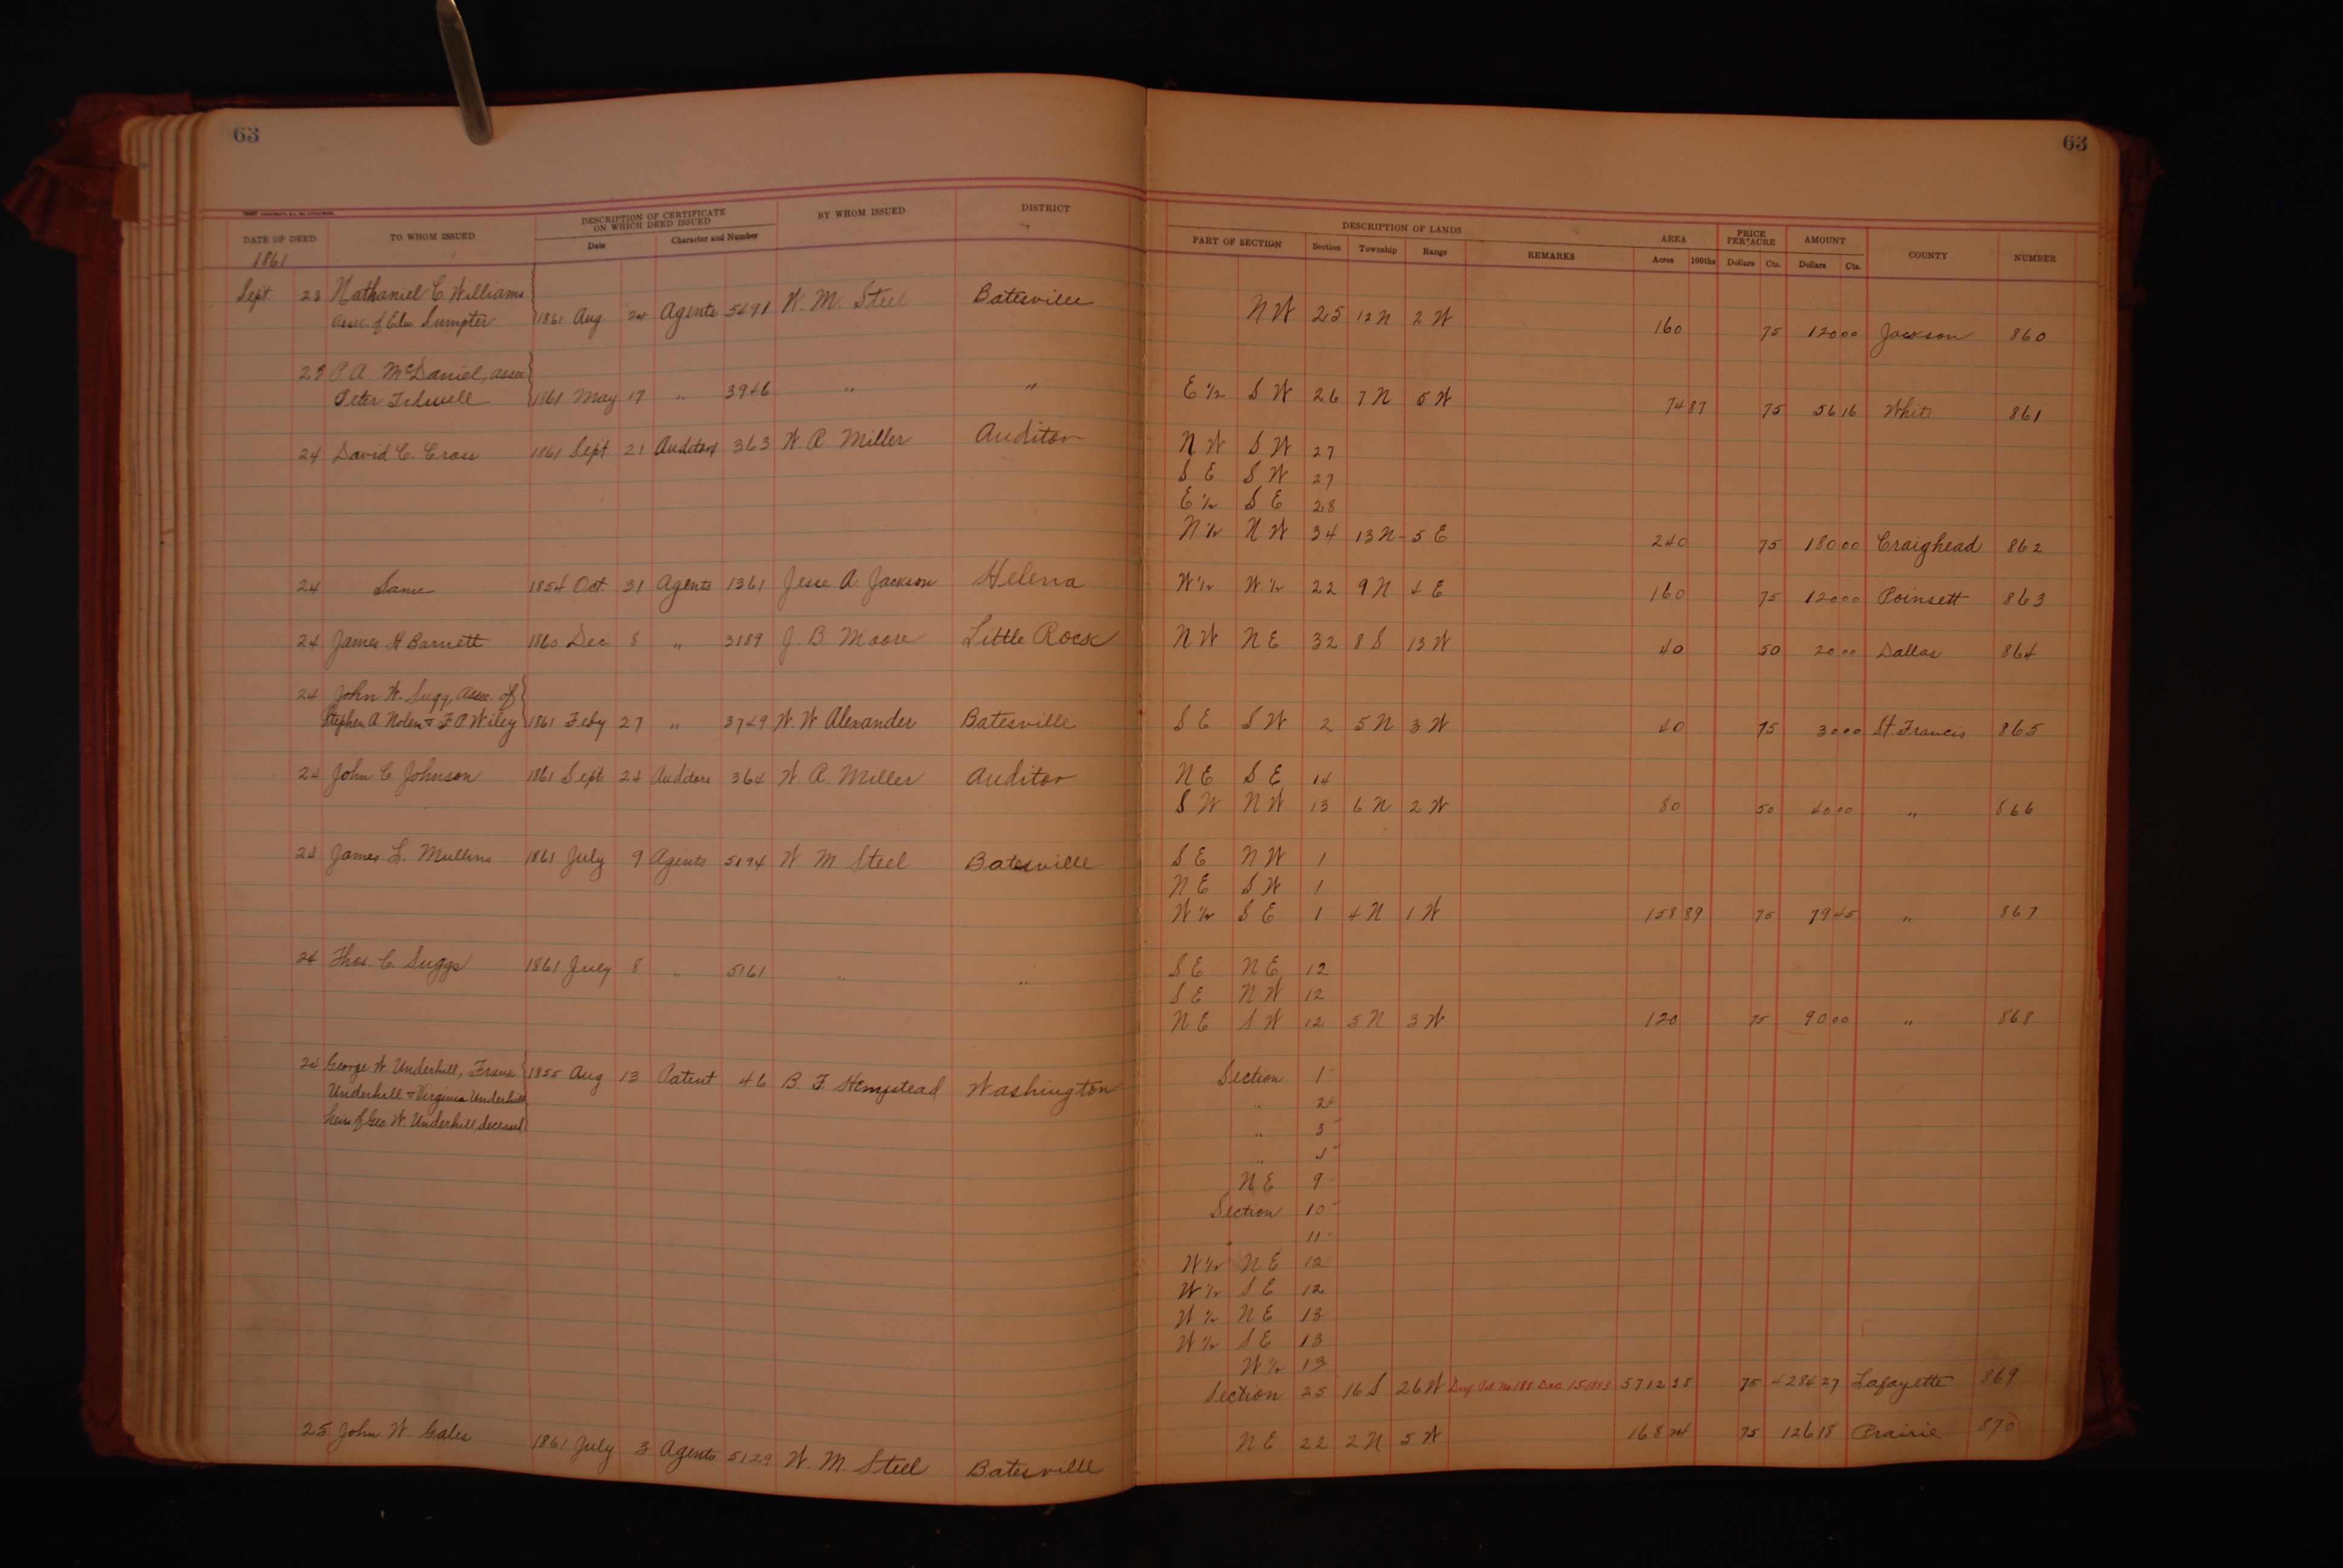 63
63
DATE OF DEED TO WHOM ISSUED DESCRIPTION OF CERTIFICATE ON WHICH DEED ISSUED BY WHOM ISSUED DISTRICT DESCRIPTION OF LANDS AREA PRICE PER ACRE AMOUNT COUNTY NUMBER
Date Character and Number PART OF SECTION Section Township Range REMARKS Acres 100ths Dollars Cts. Dollars Cts.
1861
Sept. 23 Nathaniel C. Williams
assee. of Sumpter 1861 Aug 24 Agents 5491 W. M. Steel Batesville N W 25 12 N 2 W 160 75 120 00 Jackson 860
23 P. A. McDaniel, assee
Peter Tidwell 1861 May 17 " 3946 " " E 1/2 S W 26 7 N 5 W 74 87 75 56 16 White 861
24 David C. Cross 1861 Sept. 21 Auditors 363 W. R. Miller Auditor N W S W 27
S E S W 27
E 1/2 S E 28
N 1/2 N W 34 13 N 5 E 240 75 180 00 Craighead 862
24 Same 1854 Oct. 31 Agents 1361 Jesse A. Jackson Helena W 1/2 W 1/2 22 9 N 4 E 160 75 120 00 Poinsett 863
24 James H Barnett 1860 Dec 8 " 3189 J. B Moore Little Rock N W N E 32 8 S 13 W 40 50 20 00 Dallas 864
24 John W. Sugg, Assee. of
Stephen A Nolen & F P Wiley 1861 Feby 27 " 3749 W. W Alexander Batesville S E S W 2 5 N 3 W 40 75 30 00 St. Francis 865
24 John C. Johnson 1861 Sept 24 Auditors 364 W. R. Miller Auditor N E S E 14
S W N W 13 6 N 2 W 80 50 40 00 " 866
24 James L. Mullins 1861 July 9 Agents 5194 W M. Steel Batesville S E N W 1
N E S W 1
W 1/2 S E 1 4 N 1 W 158 89 75 79 45 " 867
24 Thos. C. Suggs 1861 July 8 " 5161 " " S E N E 12
S E N W 12
N E S W 12 5 N 3 W 120 75 90 00 " 868
24 George W. Underhill, Frank 1855 Aug 13 Patent 46 B. F. Hempstead Washington Section 1
Underhill & Virginia Underhill " 2
heirs of Geo. W. Underhill, deceased " 3
"
N E 9
Section 10
" 11
W 1/2 N E 12
W 1/2 S E 12
W 1/2 N E 13
W 1/2 S E 13
W 1/2 13
Section 25 16 S 26 W 5712 35 75 4284 27 Lafayette 869
25 John W. Gales 1861 July 3 Agents 5129 W. M. Steel Batesville N E 22 2 N 5 W 168 24 75 126 18 Prairie 870